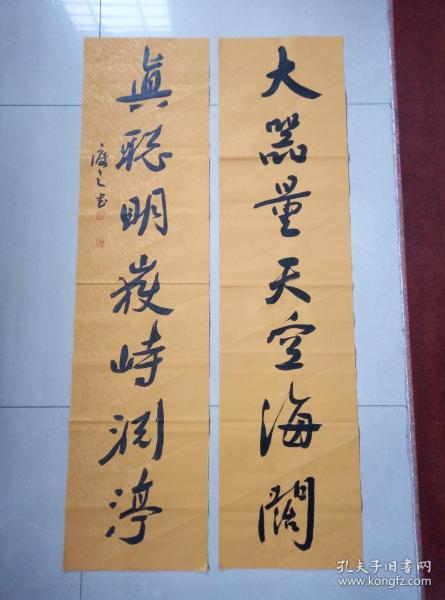 大器量天空海闊
真聪明嶽峙渊渟
之书
孔夫子旧书网
www.kongfz.com